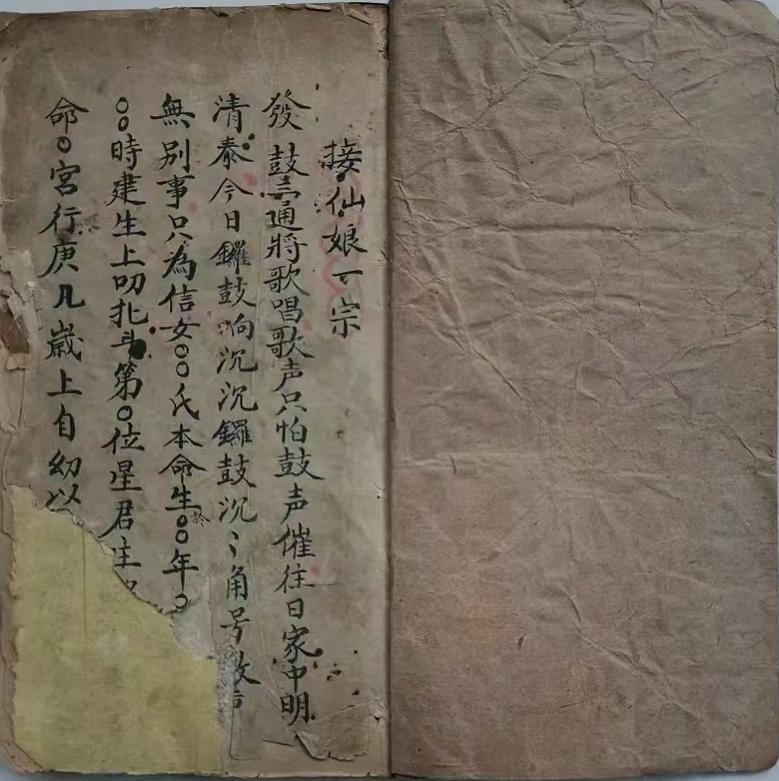 接仙娘一宗
發鼓三通將歌唱歌声只怕鼓声催往日家中明
清泰今日鑼鼓响沉沉鑼鼓沉〻角号
無别事只為信女○○氏本命生於○○年○
○○時建生上叨北斗第○位星君主
命○宮行庚几歲上自幼以